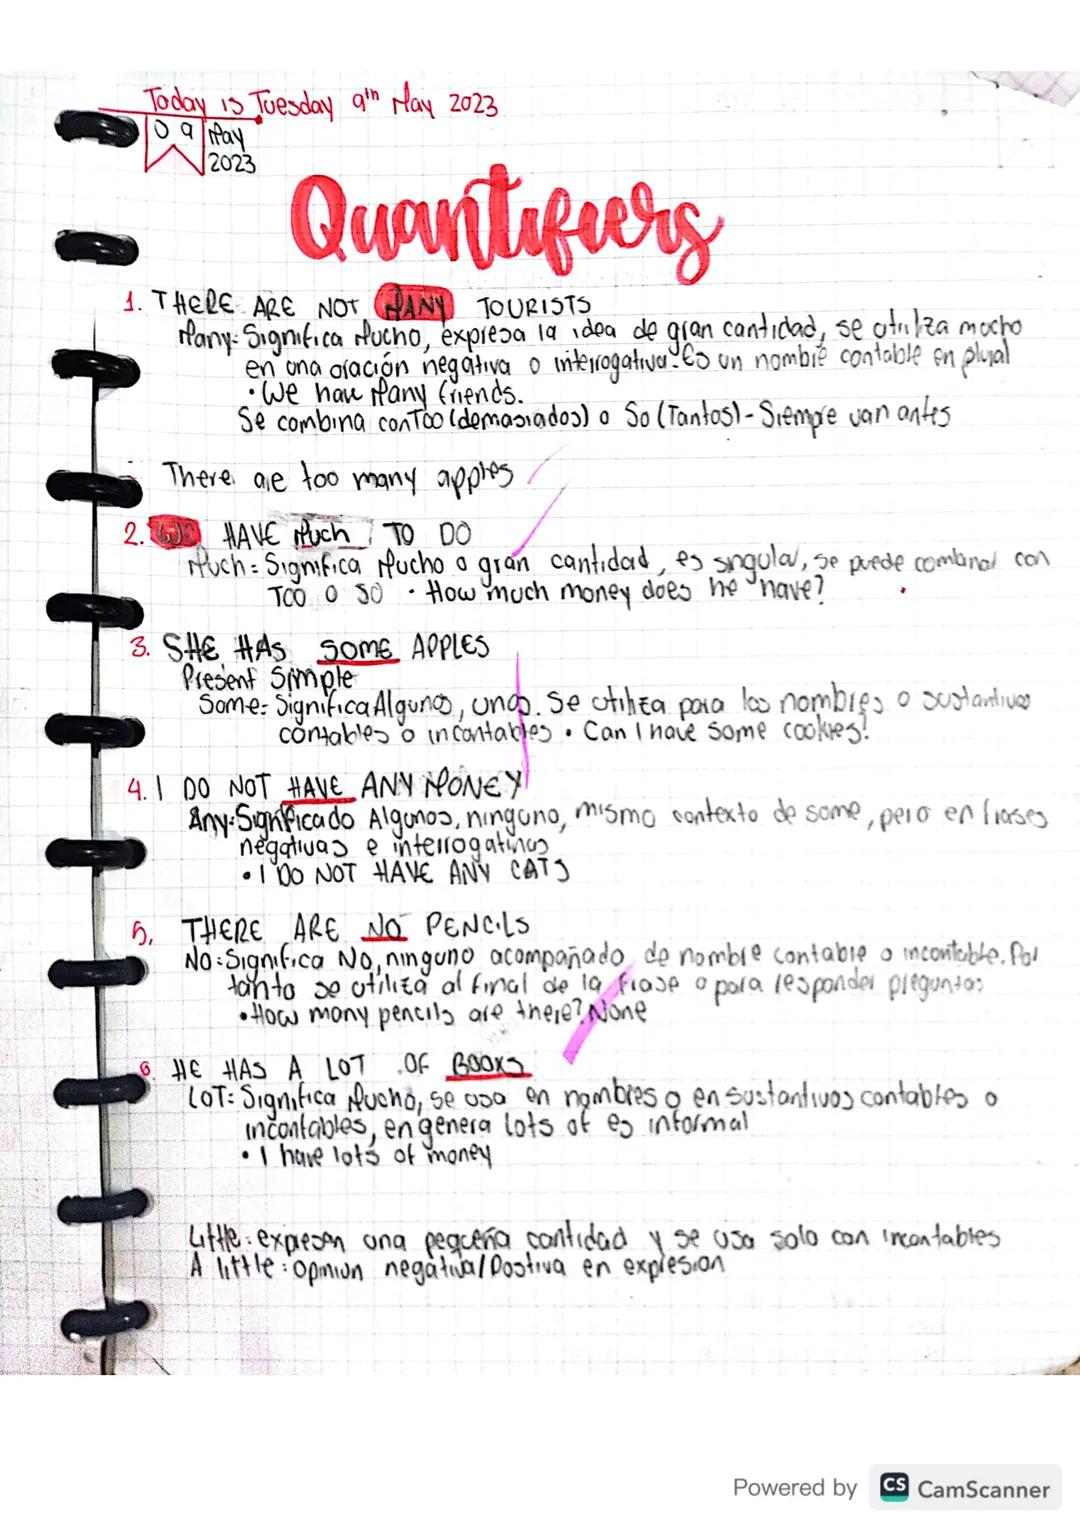 Today is Tuesday 9th May 2023
09 May
2023
Quantifiers
1. THERE ARE NOT MANY TOURISTS
Many: Significa Mucho, expresa la idea de gran cantidad, se utiliza mucho
en una oración negativa o interrogativa. Es un nombre contable en plural
• We have Many friends.
Se combina con Too (demasiados) o So (Tantos) - Siempre van antes
There are too many apples
2. WE HAVE Much TO DO
Much = Significa Mucho o gran cantidad, es singular, se puede combinar con
TOO o SO • How much money does he have?
3. SHE HAS SOME APPLES
Present Simple
Some: Significa Algunos, unos. Se utiliza para los nombres o sustantivos
contables o incontables • Can I have some cookies?
4. I DO NOT HAVE ANY MONEY
Any: Significado Algunos, ninguno, mismo contexto de some, pero en frases
negativas e interrogativas
• I DO NOT HAVE ANY CATS
5. THERE ARE NO PENCILS
NO: Significa No, ninguno acompañado de nombre contable o incontable. Por
tanto se utiliza al final de la frase o para responder preguntas
• How many pencils are there? None
6. HE HAS A LOT OF BOOKS
LOT: Significa Mucho, se usa en nombres o en sustantivos contables o
incontables, en genera lots of es informal
• I have lots of money
Little: expresan una pequeña cantidad y se usa solo con incontables
A little: opinion negativa/Postiva en expresion
Powered by CS CamScanner